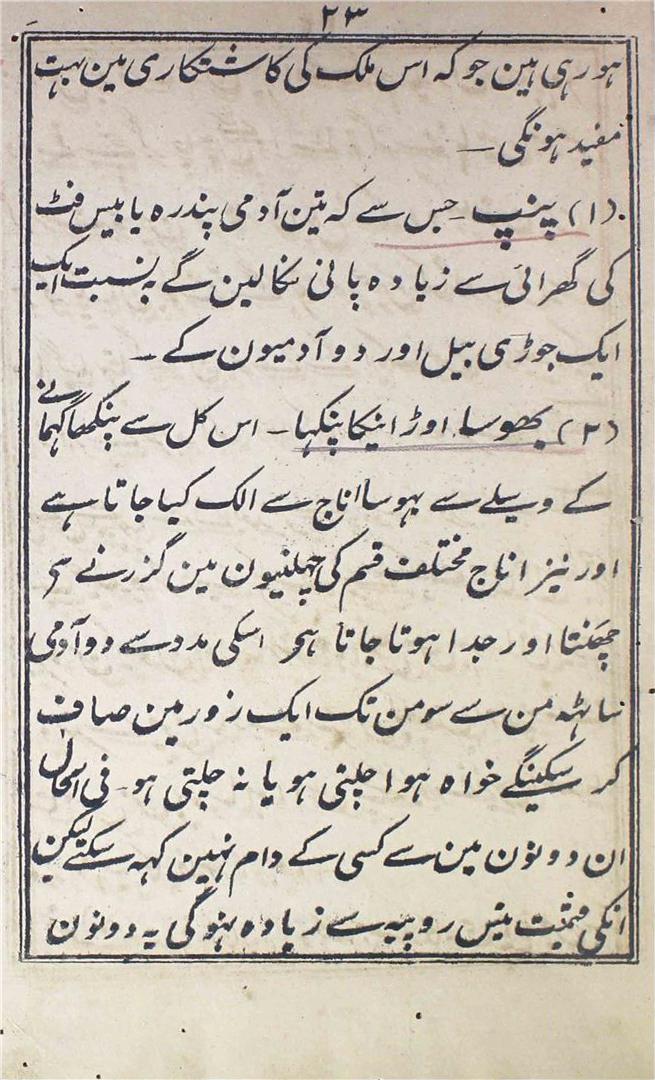 ۲۳
ہو رہی ہین جو کہ اس ملک کی کاشتکاری مین بہت
مفید ہونگی ۔
(۱) پنپ ۔ جس سے کہ تین آدمی پندرہ یا بیس فٹ
کی گھرائی سے زیادہ پانی نکالین گے بہ نسبت ایک
ایک جوڑی بیل اور دو آدمیون کے ۔
(۲) بھوسا اوڑانیکا پنکہا ۔ اس کل سے پنکھا گھمانے
کے وسیلے سے بہوسا اناج سے الک کیا جاتا ہے
اور نیز اناج مختلف قسم کی چھلنیون مین گزرنے سے
چھنتا اور جدا ہوتا جاتا ہی اسکی مدد سے دو آدمی
ساٹھہ من سے سو من تک ایک روز مین صاف
کر سکینگے خواہ ہوا چلتی ہو یا نہ چلتی ہو ۔ فی الحال
ان دونون مین سے کسی کے دام نہین کہہ سکتے لیکن
انکی قیمت تیس روپیہ سے زیادہ نہوگی یہ دونون